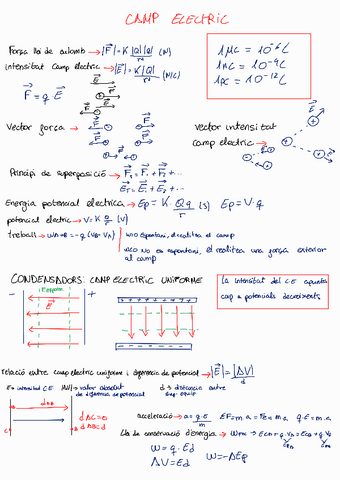 CAMP ELECTRIC
Força llei de coulomb → |F⃗| = K |Q||q| / r² (N)
Intensitat camp electric → |E⃗| = K |Q| / r² (N/C)
1 μC = 10⁻⁶ C
1 nC = 10⁻⁹ C
1 pC = 10⁻¹² C
F⃗ = q · E⃗
Vector força →
Vector intensitat
camp electric →
Principi de superposició → F⃗T = F⃗1 + F⃗2 + ...
E⃗T = E⃗1 + E⃗2 + ...
Energia potencial electrica → Ep = K · Q q / r (J) Ep = V · q
potencial electric → V = K Q / r (V)
treball → WA→B = -q (VB - VA)
W>0 Espontani, el realitza el camp
W<0 No espontani, el realitza una força exterior
al camp
CONDENSADORS: CAMP ELECTRIC UNIFORME
La intensitat del C.E apunta
cap a potencials decreixents
- +
E⃗
relació entre camp electric uniforme i diferencia de potencial → |E⃗| = |ΔV| / d
E = intensitat C.E |ΔV| → valor absolut
de diferencia de potencial
d → distancia entre
sup. equip
acceleració → a = q · E / m
q · E = m · a
Llei de conservació d'energia →
W = q · E d
ΔV = E d
W = -ΔEp